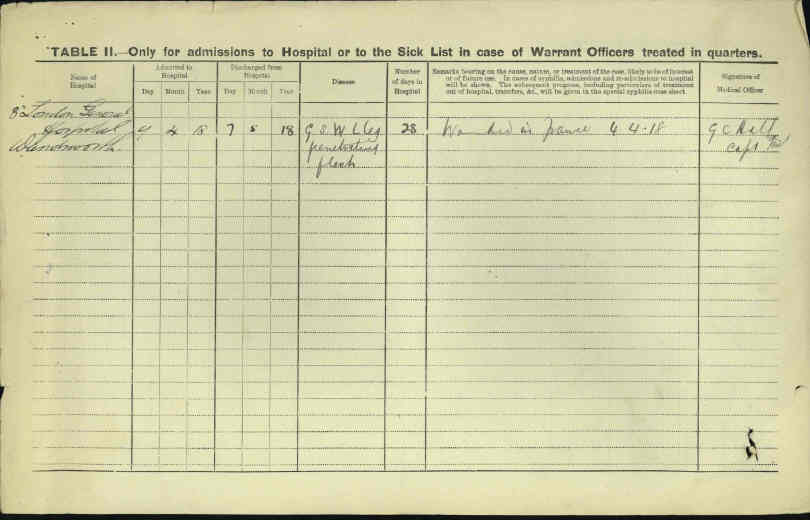 TABLE II.—Only for admissions to Hospital or to the Sick List in case of Warrant Officers treated in quarters.
Name of Hospital
Admitted to Hospital
Day Month Year
Discharged from Hospital
Day Month Year
Disease
Number of days in Hospital
Remarks bearing on the cause, nature, or treatment of the case, likely to be of interest
or of future use. In cases of syphilis, admissions and re-admissions to hospital
will be shown. The subsequent progress, including particulars of treatment
out of hospital, transfers, &c., will be given in the special syphilis case sheet.
Signature of Medical Officer
London General
Hospital 4 7 5 18 G. S. W L Leg 28 Wounded in France 4-4-18 G C
Wandsworth penetrating Capt
flesh